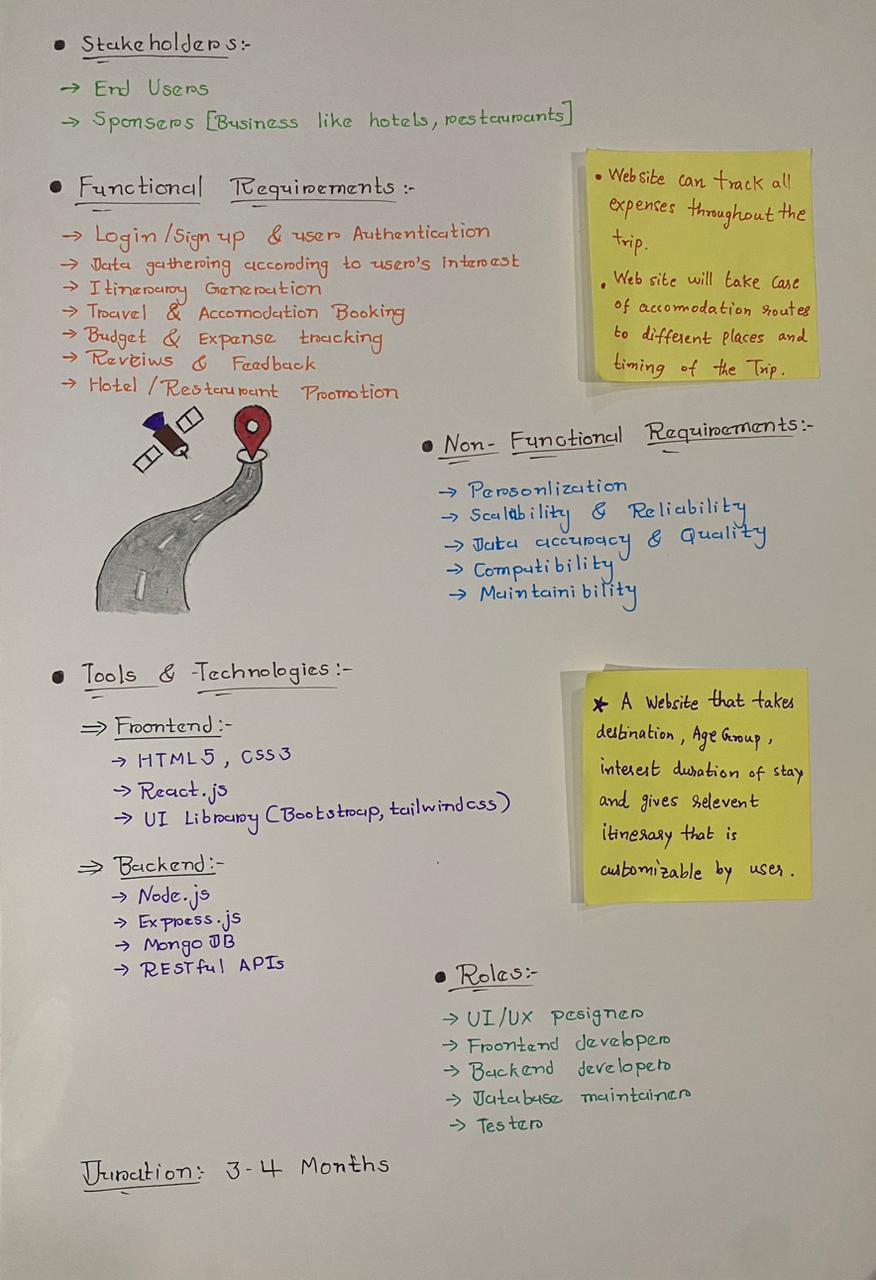 • Stakeholders:-
→ End Users
→ Sponsers [Business like hotels, restaurants]
• Functional Requirements :-
→ Login/Sign up & user Authentication
→ Data gathering according to user's interest
→ Itinerary Generation
→ Travel & Accomodation Booking
→ Budget & Expense tracking
→ Reveiws & Feedback
→ Hotel / Restaurant Promotion
• Website can track all
expenses throughout the
trip.
• Web site will take case
of accomodation routes
to different places and
timing of the Trip.
• Non- Functional Requirements:-
→ Personlization
→ Scalability & Reliability
→ Data accuracy & Quality
→ Computibility
→ Maintainibility
• Tools & Technologies:-
⇒ Frontend:-
→ HTML5, CSS3
→ React.js
→ UI Library (Bootstrap, tailwindcss)
⇒ Backend:-
→ Node.js
→ Express.js
→ Mongo DB
→ RESTful APIs
★ A Website that takes
destination, Age Group,
interest duration of stay
and gives relevent
itinerary that is
customizable by user.
• Roles:-
→ UI/UX Designer
→ Frontend developer
→ Backend developer
→ Database maintainer
→ Tester
Duration: 3-4 Months